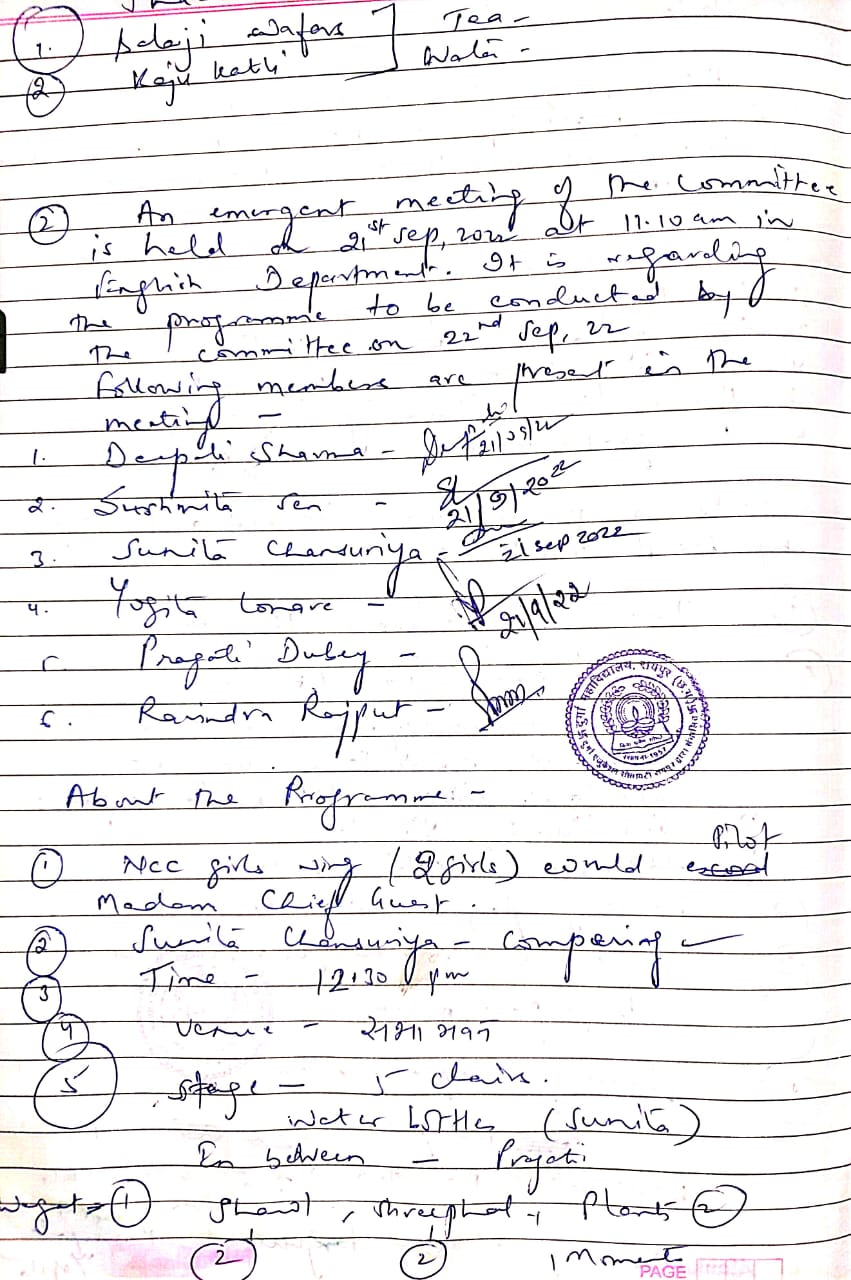 1. Balaji Wafers ] Tea -
2 Kaju Katli Water -
2 An emergent meeting of the Committee
is held on 21st Sep, 2022 at 11.10 am in
English Department. It is regarding
the programme to be conducted by
the committee on 22nd Sep, 22
Following members are present in the
meeting —
1. Deepali Sharma - 21/09/22
2. Sushmita Sen - 21/9/2022
3. Sunita Chansuriya - 21 Sep 2022
4. Yogita Lonare - 21/9/22
5 Pragati Dubey -
6. Ravindra Rajput -
महाविद्यालय, रायपुर (छ.ग.)
About the Programme: -
1 NCC girls wing (2 girls) could escord Pilot
Madam Chief Guest.
2 Sunita Chansuriya - Compering
3 Time - 12:30 pm
4 Venue - सभा भवन
5 Stage — 5 chairs.
Water bottles (Sunita)
In between — Pragati
1 Shawl, Shreephal, Plants 2
2 2 Moment
PAGE